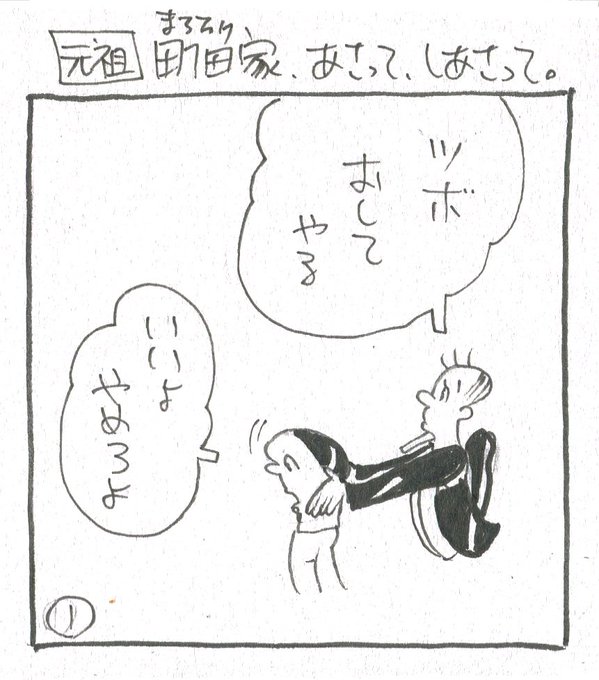 元祖 町田家、あさって、しあさって。
ツボ
おして
やる
いいよ
やめろよ
1